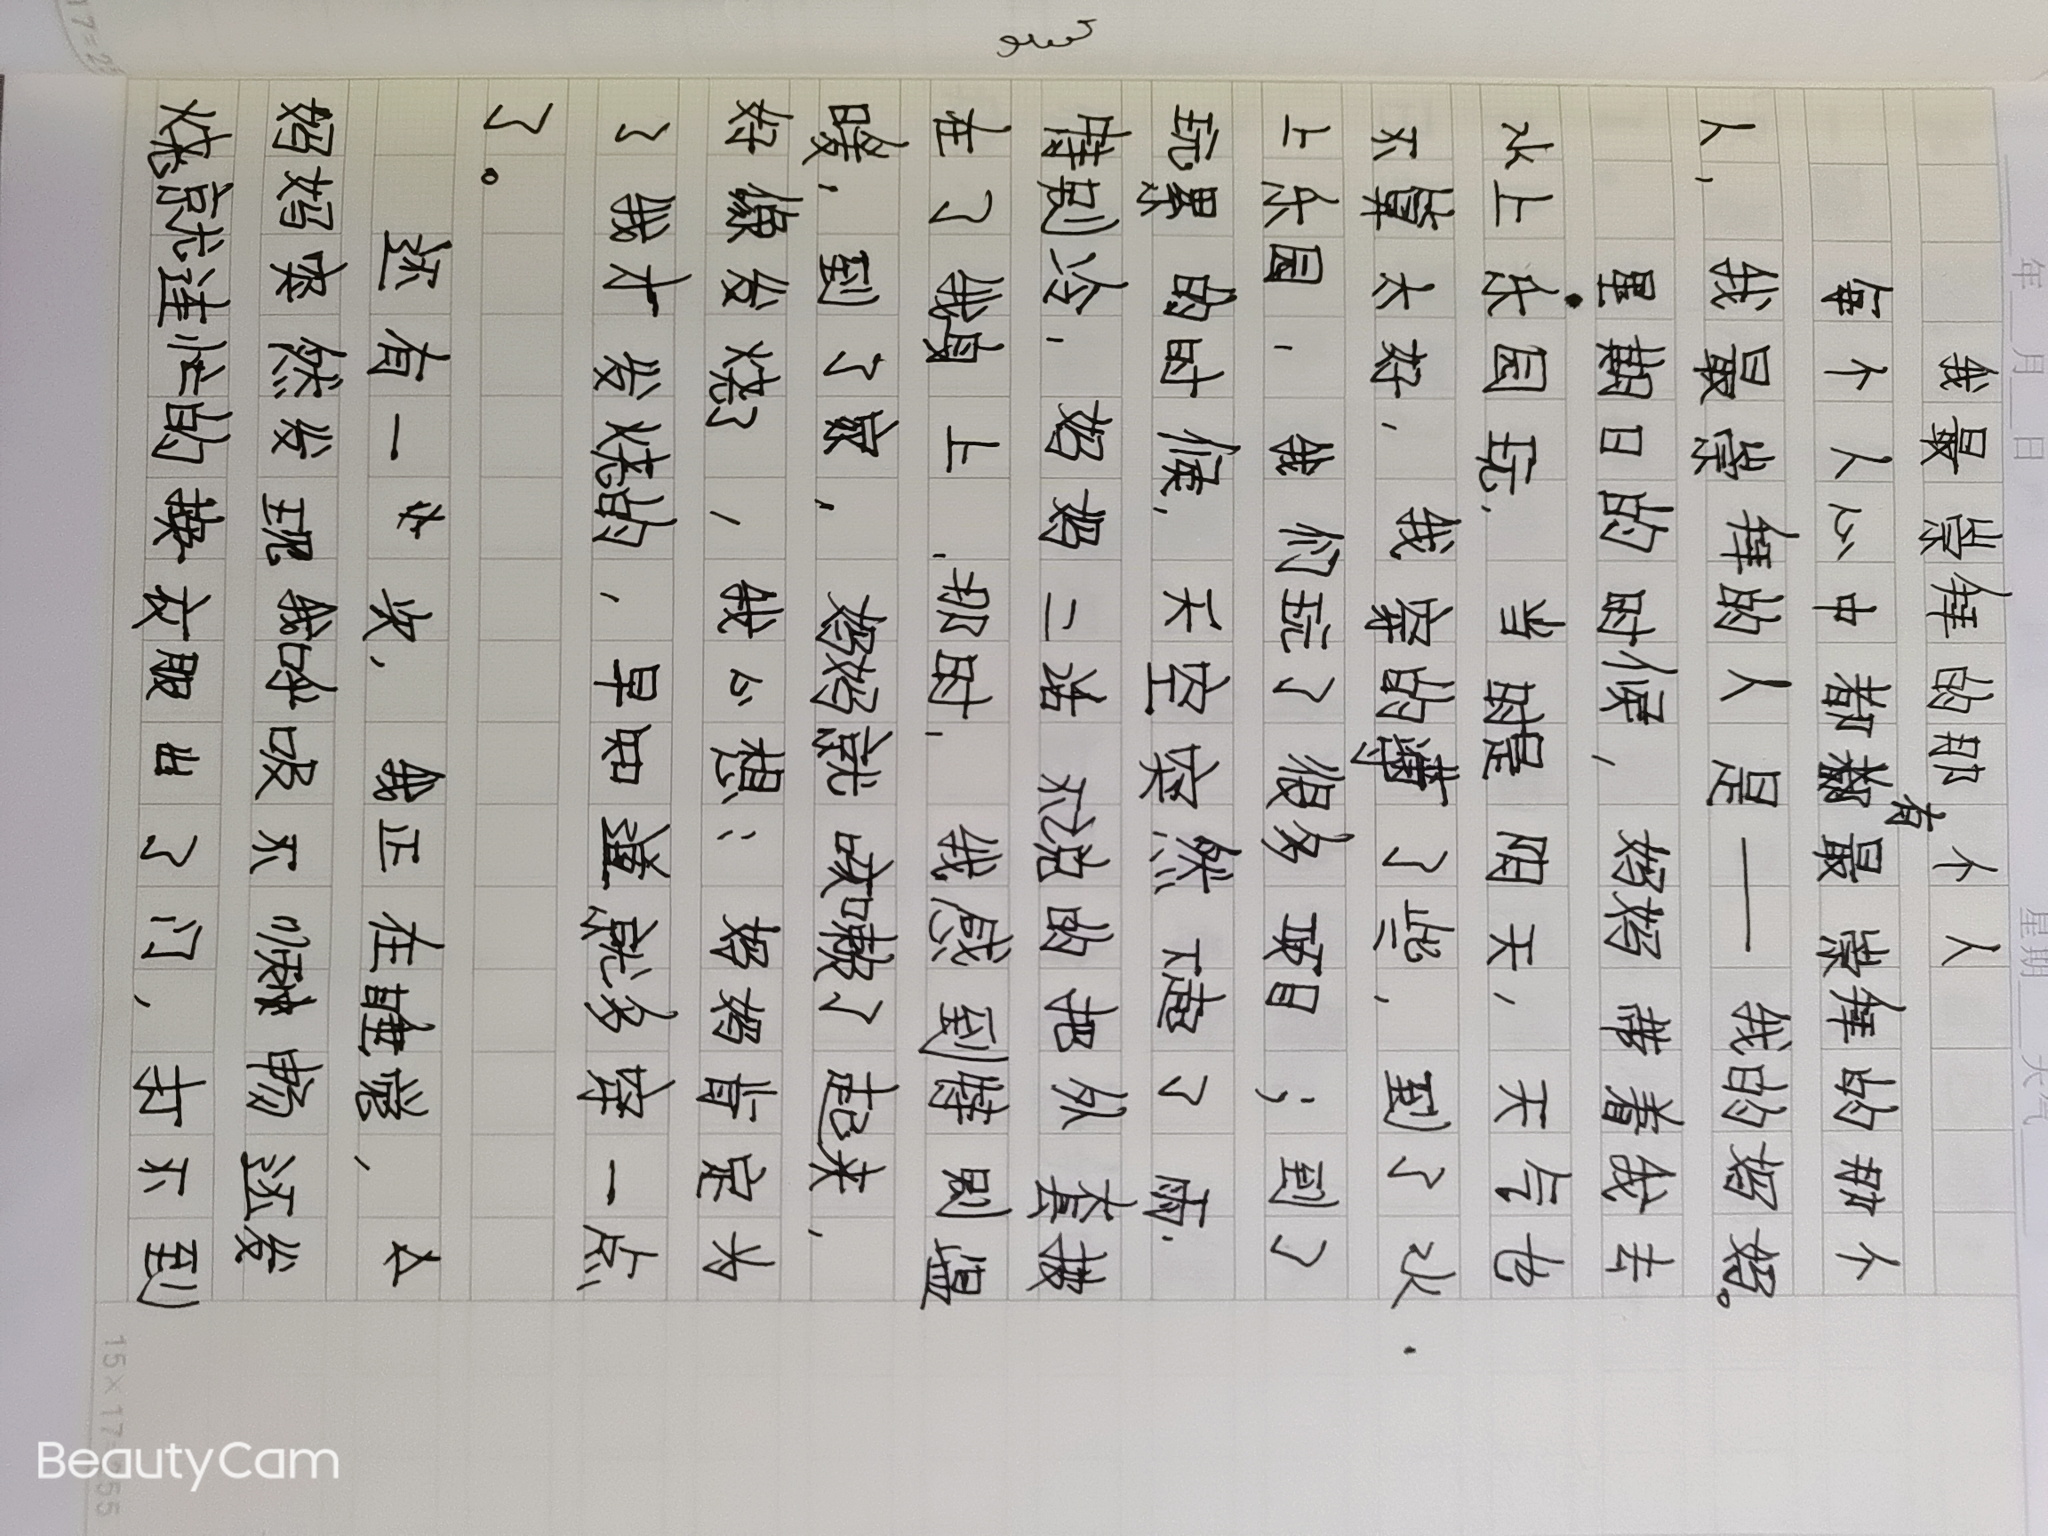 年 月 日 星期 天气
我最崇拜的那个人
每个人心中都有最崇拜的那个
人,我最崇拜的人是——我的妈妈。
星期日的时候,妈妈带着我去
水上乐园玩,当时是阴天,天气也
不算太好,我穿的薄了些,到了水
上乐园,我们玩了很多项目;到了
玩累的时候,天空突然下起了雨.
特别冷,妈妈二话不说的把外套披
在了我身上.那时,我感到特别温
暖,到了家,妈妈就咳嗽了起来,
好像发烧了,我心想:妈妈肯定为
了我才发烧的,早知道就多穿一点
了。
还有一次,我正在睡觉,
妈妈突然发现我呼吸不顺畅还发
烧就连忙的披衣服出了门,打不到
15×17=255
BeautyCam